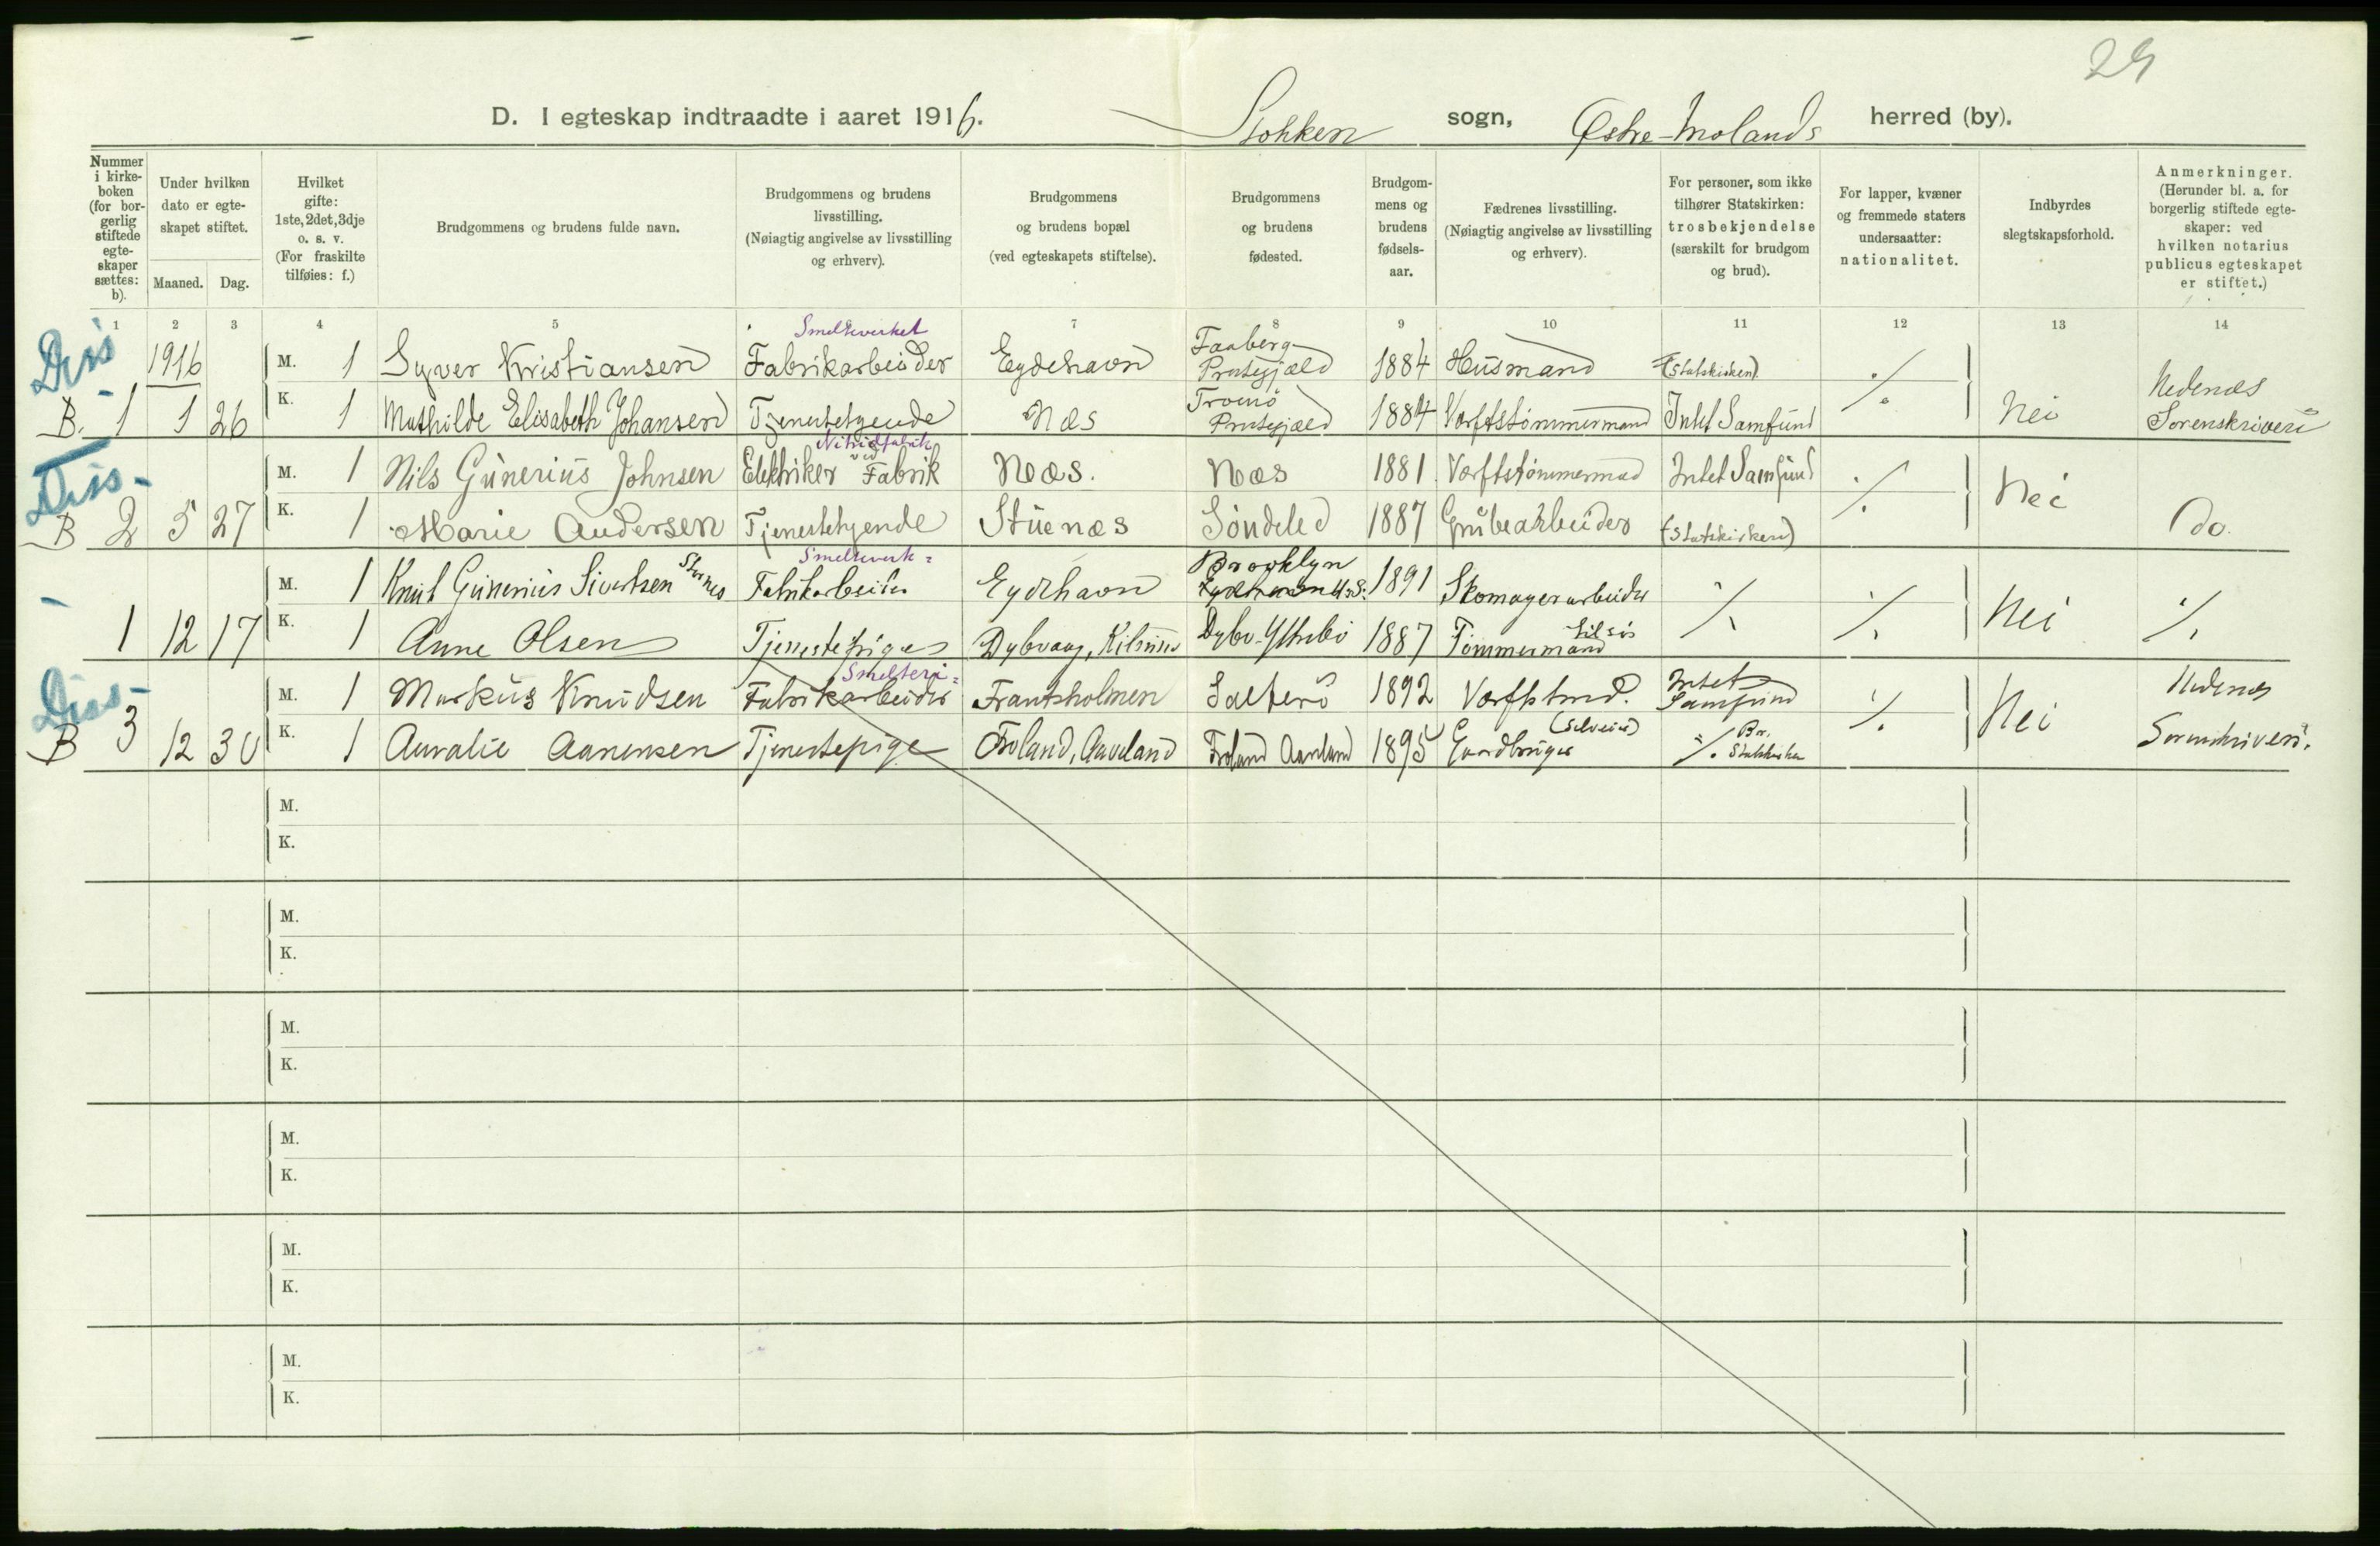 29
D. I egteskap indtraadte i aaret 1916. Stokken sogn, Østre-Molands herred (by).
Nummer i kirke-boken (for bor-gerlig stiftede egte-skaper sættes: b).
Under hvilken dato er egte-skapet stiftet.
Maaned. Dag.
Hvilket gifte: 1ste, 2det, 3dje o. s. v. (For fraskilte tilføies: f.)
Brudgommens og brudens fulde navn.
Brudgommens og brudens livsstilling. (Nøiagtig angivelse av livsstilling og erhverv).
Brudgommens og brudens bopæl (ved egteskapets stiftelse).
Brudgommens og brudens fødested.
Brudgom-mens og brudens fødsels-aar.
Fædrenes livsstilling. (Nøiagtig angivelse av livsstilling og erhverv).
For personer, som ikke tilhører Statskirken: trosbekjendelse (særskilt for brudgom og brud).
For lapper, kvæner og fremmede staters undersaatter: nationalitet.
Indbyrdes slegtskapsforhold.
Anmerkninger. (Herunder bl. a. for borgerlig stiftede egte-skaper: ved hvilken notarius publicus egteskapet er stiftet.)
1 2 3 4 5 7 8 9 10 11 12 13 14
Diss
Smelteverket
1916 M. 1 Syver Kristiansen Fabrikarbeider Eydehavn Faaberg Prestegjæld 1884 Husmand (Statskirken) ./.
B. 1 1 26 K. 1 Mathilde Elisabeth Johansen Tjenestetgende Næs Tromø Prestegjæld 1884 Værftstømmermand Intet Samfund Nei Nedenæs Sorenskriveri
Diss-
Nitridfabrik
M. 1 Nils Gunerius Johnsen Elektriker ved Fabrik Næs. Næs 1881 Værftstømmermand Intet Samfund ./. Nei
B 2 5 27 K. 1 Marie Andersen Tjenestetgende Stuenæs Søndeled 1887 Grubearbeider (Statskirken) Do.
Smelteverk-
M. 1 Knut Gunerius Sivertsen Fabrikarbeider Eydehavn Brooklyn 1891 Skomagerarbeider ./. ./. Nei ./.
1 12 17 K. 1 Anne Olsen Tjenestepige Dybvaag, 1887 Tømmermand
Diss-
Smelteri-
M. 1 Markus Knudsen Fabrikarbeider Frantsholmen Salterø 1892 Værftstmd. Intet Samfund ./. Nei Nedenæs
B 3 12 30 K. 1 Auralie Aanensen Tjenestepige Froland, Froland 1895 Gaardbruger (Selveier) ./. Br. Statskirken Sorenskriveri.
M.
K.
M.
K.
M.
K.
M.
K.
M.
K.
M.
K.